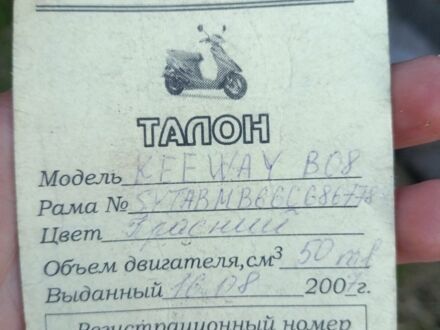 ТАЛОН
Модель KEEWAY B08
Рама № SYTABMB66C686778
Цвет Красний
Объем двигателя,см³ 50
Выданный 16.08 2007г.
Регистрационный номер